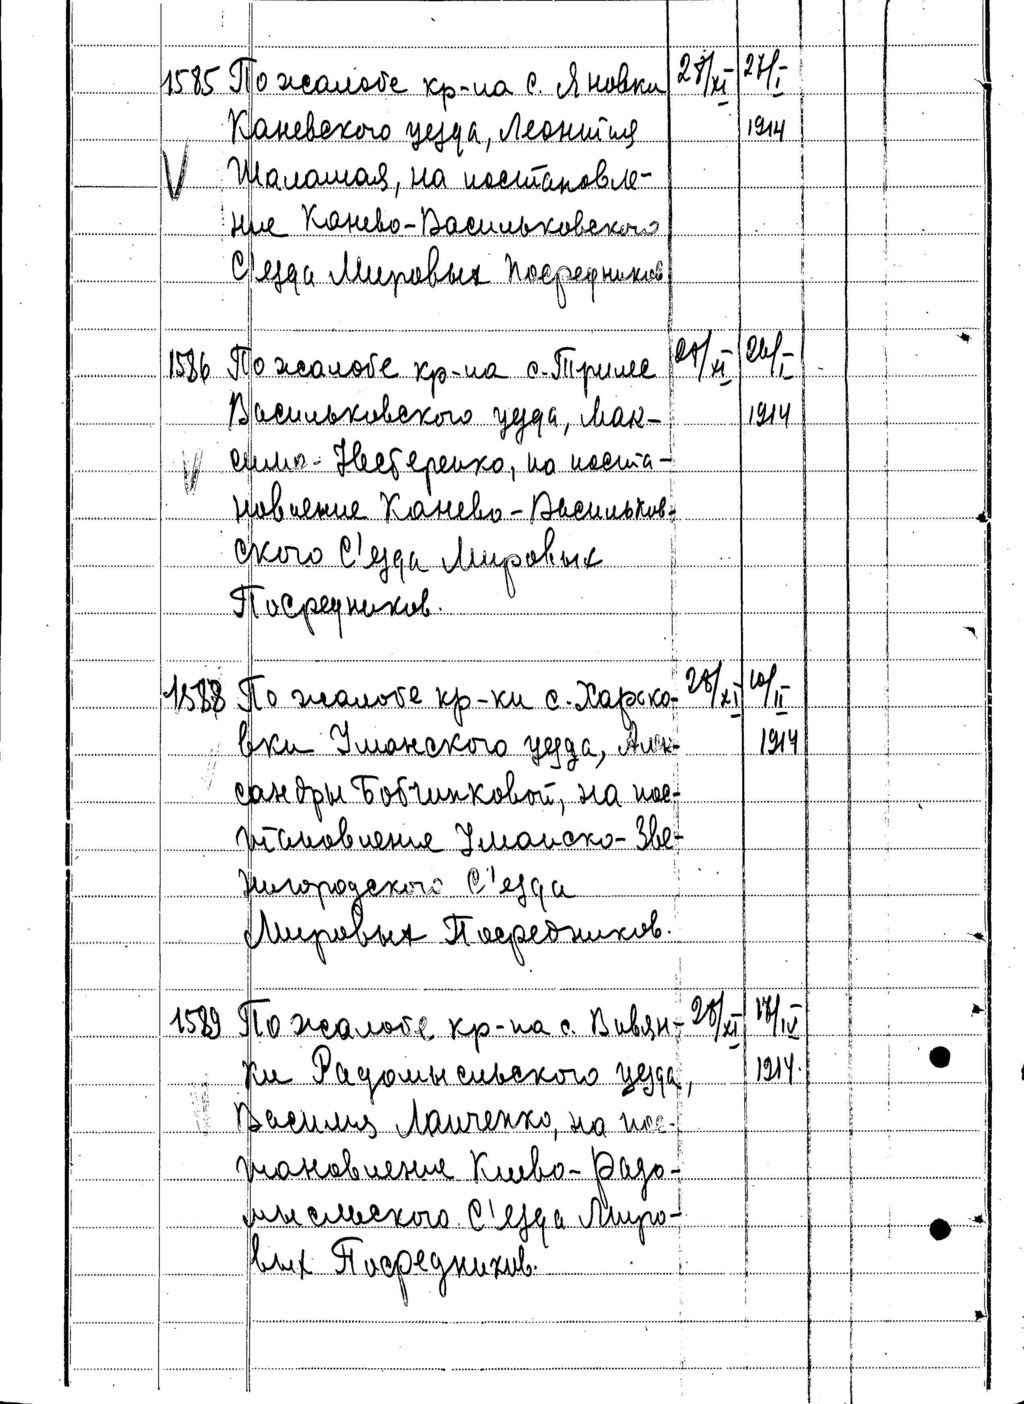 1585 По жалобе кр-на с. Яновки 28/XI 27/I
Каневского уезда, Леонтия 1914
Шалашая, на постановле-
ние Канево-Васильковского
С'езда Мировых Посредников
1586 По жалобе кр-на с. Трилес 28/XI 26/I
Васильковского уезда, Мак- 1914
сима Нестеренко, на поста-
новление Канево-Васильков-
ского С'езда Мировых
Посредников.
1588 По жалобе кр-ки с. Харько- 28/XI 10/II
вки Уманского уезда, Алек- 1914
сандры Бобчинковой, на пос-
тановление Уманско-Зве-
нигородского С'езда
Мировых Посредников.
1589 По жалобе кр-на с. Вивян- 28/XI 17/IV
ки Радомысльского уезда, 1914.
Василия Ланченко, на пос-
тановление Киево-Радо-
мысльского С'езда Миро-
вых Посредников.